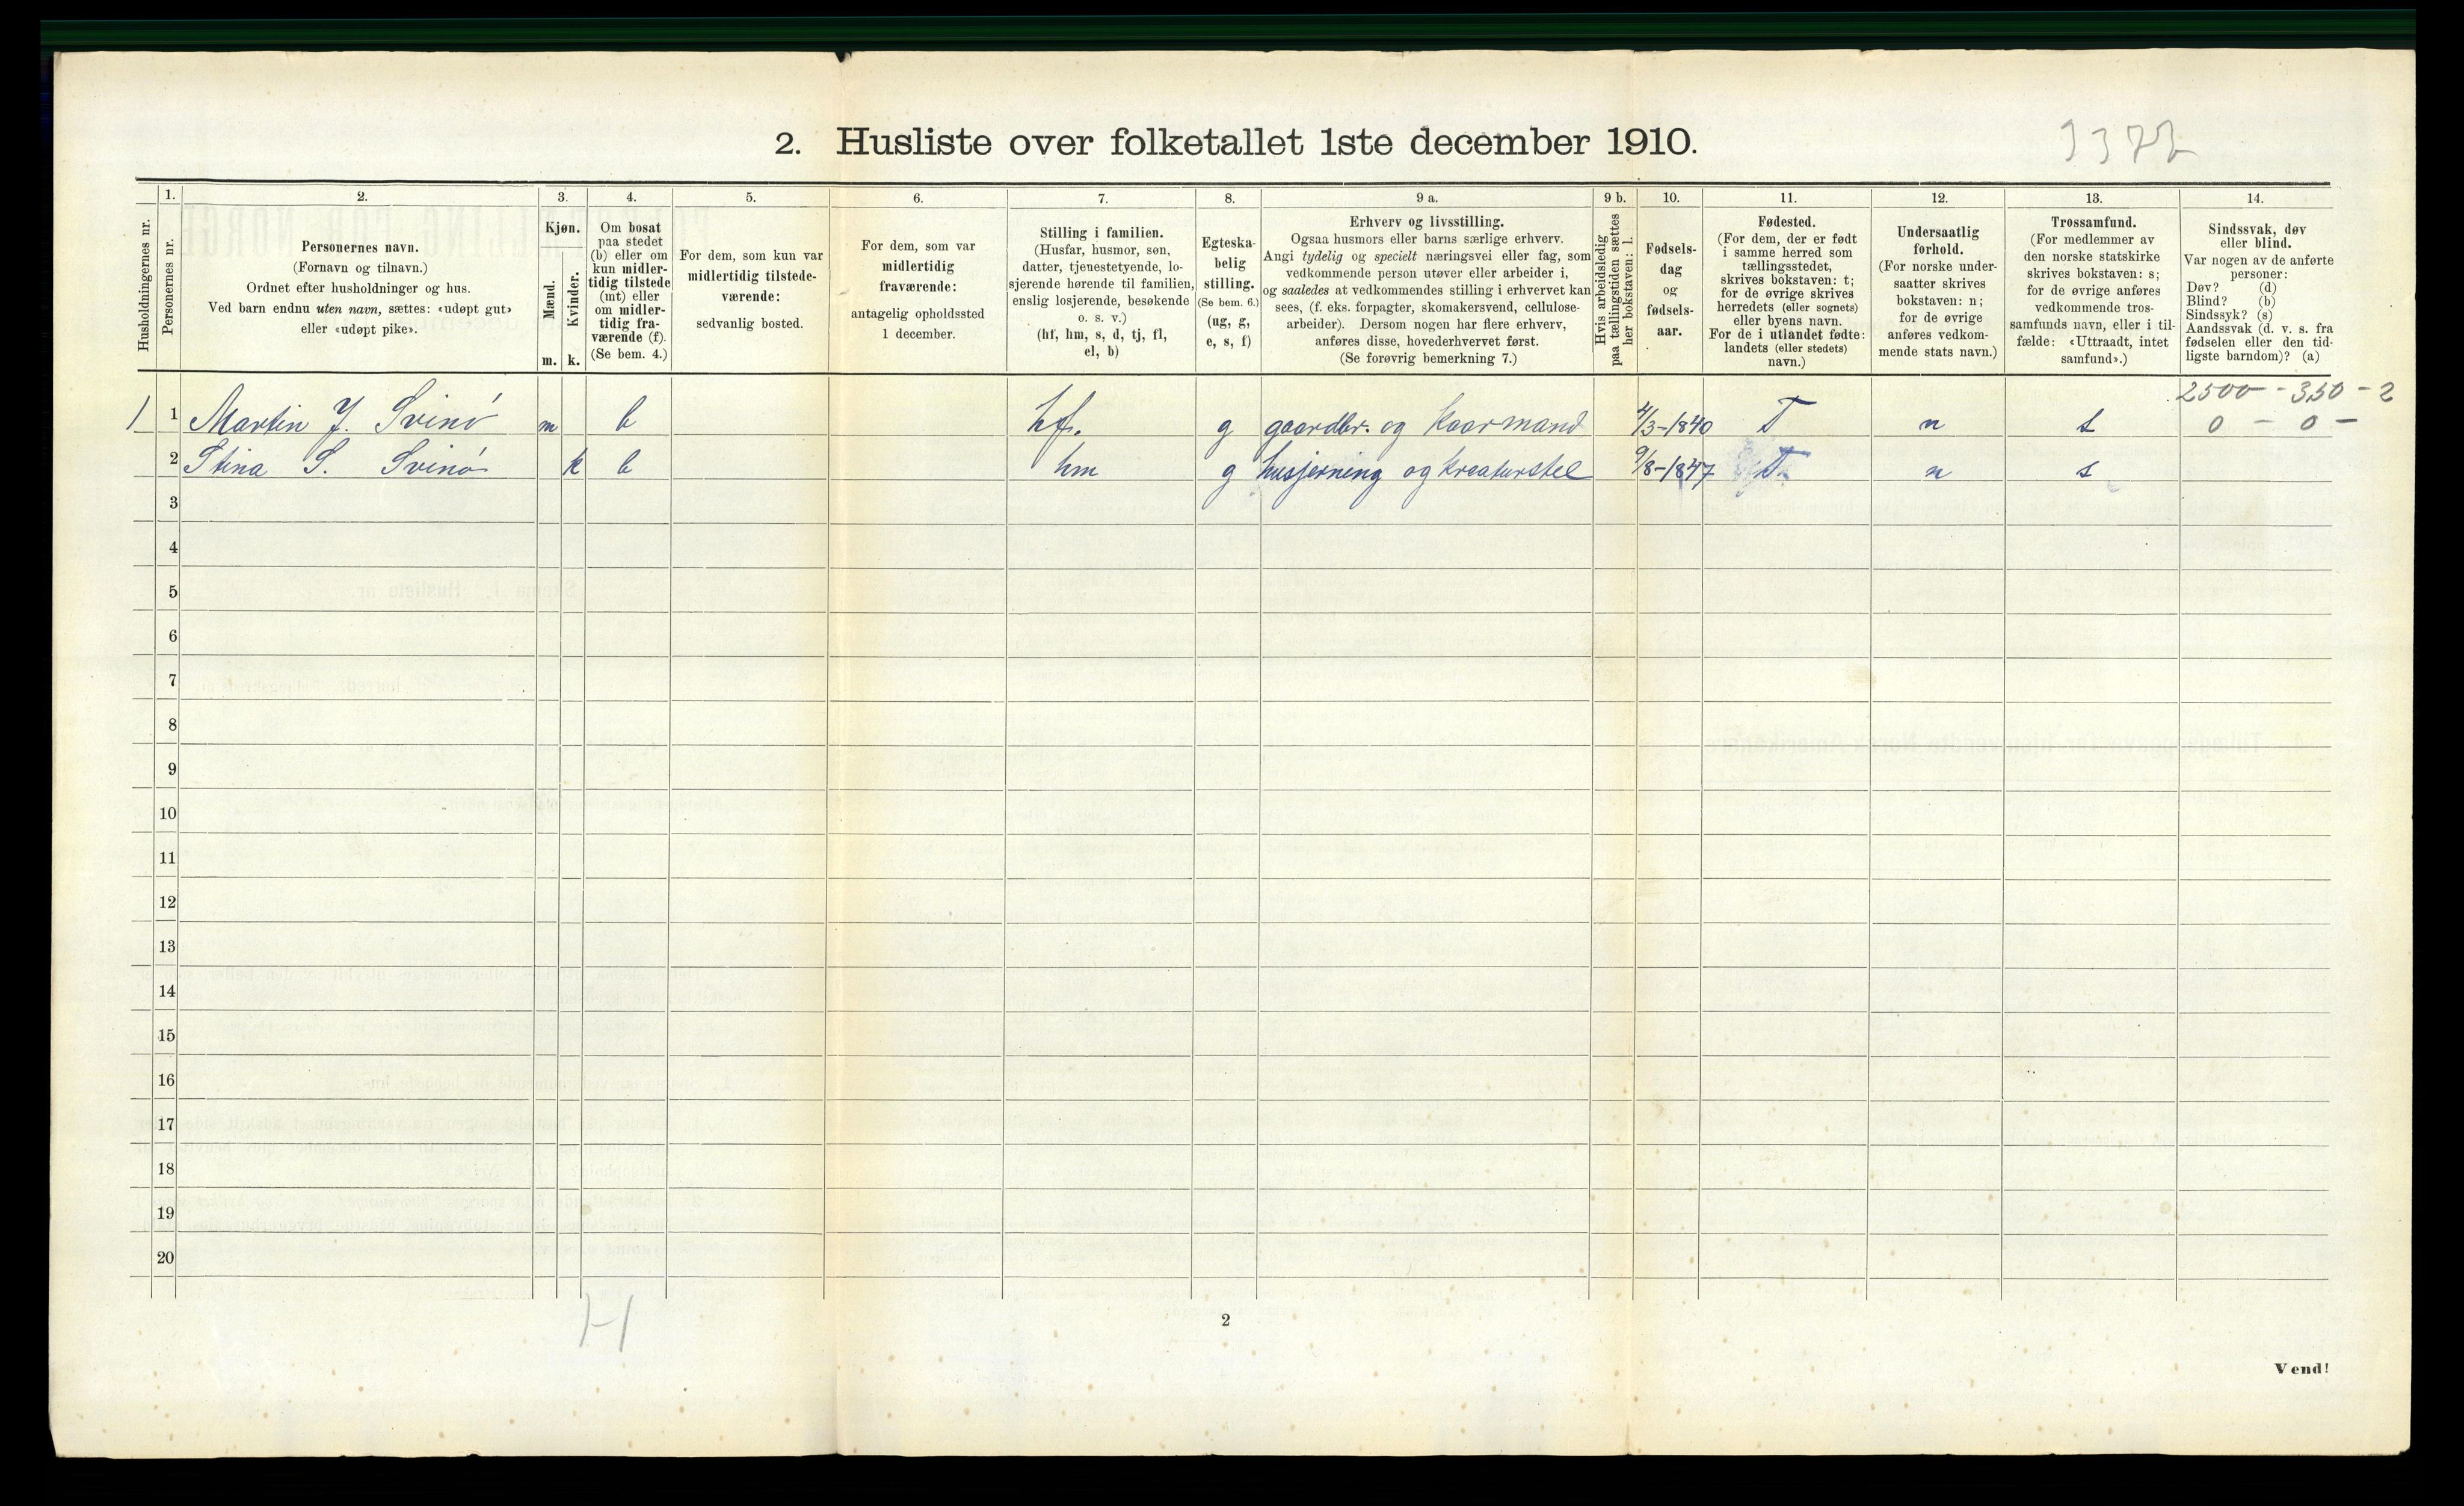 2. Husliste over folketallet 1ste december 1910.
3372
Husholdningernes nr.
1.
Personernes nr.
2.
Personernes navn.
(Fornavn og tilnavn.)
Ordnet efter husholdninger og hus.
Ved barn endnu uten navn, sættes: «udøpt gut»
eller «udøpt pike».
3.
Kjøn.
Mænd.
m.
Kvinder.
k.
4.
Om bosat
paa stedet
(b) eller om
kun midler-
tidig tilstede
(mt) eller
om midler-
tidig fra-
værende (f).
(Se bem. 4.)
5.
For dem, som kun var
midlertidig tilstede-
værende:
sedvanlig bosted.
6.
For dem, som var
midlertidig
fraværende:
antagelig opholdssted
1 december.
7.
Stilling i familien.
(Husfar, husmor, søn,
datter, tjenestetyende, lo-
sjerende hørende til familien,
enslig losjerende, besøkende
o. s. v.)
(hf, hm, s, d, tj, fl,
el, b)
8.
Egteska-
belig
stilling.
(Se bem. 6.)
(ug, g,
e, s, f)
9 a.
Erhverv og livsstilling.
Ogsaa husmors eller barns særlige erhverv.
Angi tydelig og specielt næringsvei eller fag, som
vedkommende person utøver eller arbeider i,
og saaledes at vedkommendes stilling i erhvervet kan
sees, (f. eks. forpagter, skomakersvend, cellulose-
arbeider). Dersom nogen har flere erhverv,
anføres disse, hovederhvervet først.
(Se forøvrig bemerkning 7.)
9 b.
Hvis arbeidsledig
paa tællingstiden sættes
her bokstaven: l.
10.
Fødsels-
dag
og
fødsels-
aar.
11.
Fødested.
(For dem, der er født
i samme herred som
tællingsstedet,
skrives bokstaven: t;
for de øvrige skrives
herredets (eller sognets)
eller byens navn.
For de i utlandet fødte:
landets (eller stedets)
navn.)
12.
Undersaatlig
forhold.
(For norske under-
saatter skrives
bokstaven: n;
for de øvrige
anføres vedkom-
mende stats navn.)
13.
Trossamfund.
(For medlemmer av
den norske statskirke
skrives bokstaven: s;
for de øvrige anføres
vedkommende tros-
samfunds navn, eller i til-
fælde: «Uttraadt, intet
samfund».)
14.
Sindssvak, døv
eller blind.
Var nogen av de anførte
personer:
Døv? (d)
Blind? (b)
Sindssyk? (s)
Aandssvak (d. v. s. fra
fødselen eller den tid-
ligste barndom)? (a)
2500 - 350 - 2
1 1 Martin J. Svinö m b hf. g gaardbr. og kaarmand 4/3-1840 T n s 0 - 0 -
2 Stina S. Svinö k b hm g husjerning og kreaturstel 9/8-1847 T n s
3
4
5
6
7
8
9
10
11
12
13
14
15
16
17
18
19
20
2
Vend!